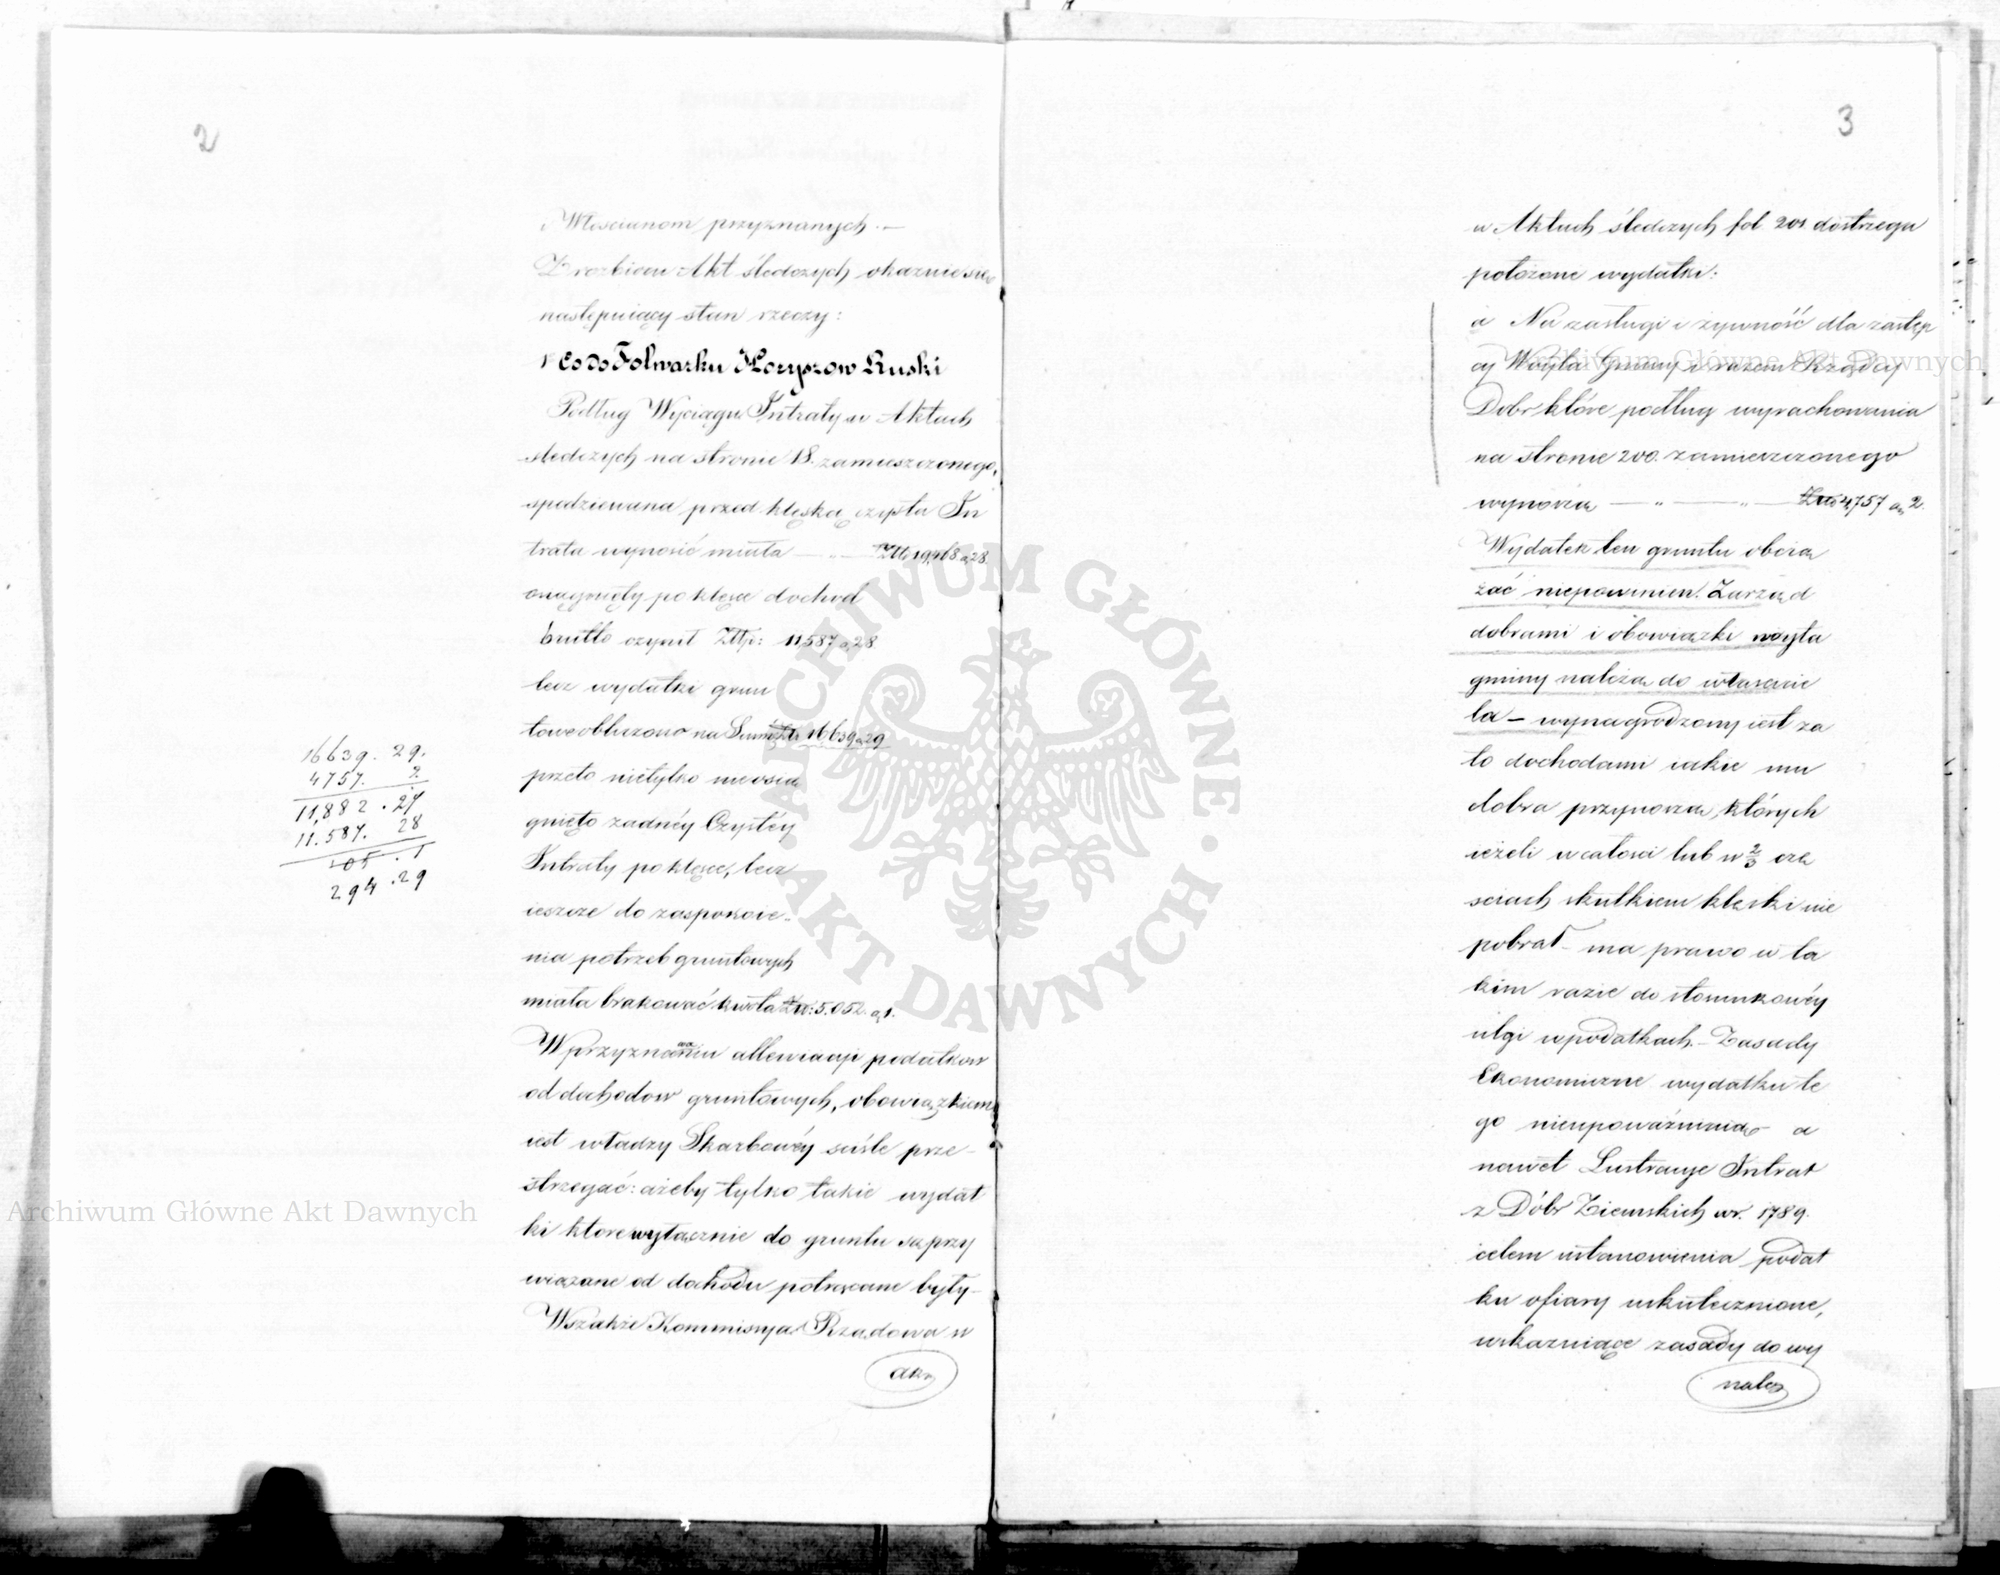 2
i Włoscianom przyznanych. —
Z rozbioru Akt śledczych okazuie się
następuiący stan rzeczy:
1° Co do Folwarku Horyszow Ruski
Podług Wyciągu Intraty w Aktach
sledczych na stronie 18. zamieszczonego,
spodziewana przed klęską czysta In
trata wynosić miała — „ — Złt. 19,468 g 28.
osiągnięty po klęsce dochod
brutto czynił Złtp: 11,587 g 28
lecz wydatki grun
towe obliczono na Summę Złt. 16639 g 29
przeto nietylko nieosią
gnięto zadnéy Czystéy
Intraty po klęsce, lecz
ieszcze do zaspokoie-
nia potrzeb gruntowych
miała brakować kwota Złt: 5.052. g 1.
W przyznawaniu allewiacyi podatkow
od dochodow gruntowych, obowiązkiem
iest władzy Skarbowéy sciśle prze-
strzegać: ażeby tylko takie wydat
ki ktore wyłącznie do gruntu są przy
wiązane od dochodu potrącane były —
Wszakże Kommissya Rządowa w
akt
16639. 29.
4757. 2.
11,882. 27
11.587. 28
105. 1
294. 29
3
w Aktach śledczych fol 201 dostrzega
położone wydatki:
a Na zasługi i żywność dla zastęp
cy Woyta Gminy i razem Rządcy
Dobr które podług wyrachowania
na stronie 200. zamieszczonego
wynoszą — „ — „ — Złt 4,757 g 2.
Wydatek ten gruntu obcią
żać niepowinien. Zarząd
dobrami i obowiązki woyta
gminy należą do właścicie
la — wynagrodzony iest za
to dochodami iakie mu
dobra przynoszą, których
ieżeli w całosci lub w 2/3 czę
sciach skutkiem klęski nie
pobrał — ma prawo w ta
kim razie do stosunkowéy
ulgi w podatkach. — Zasady
Ekonomiczne wydatku te
go nieupoważniaią — a
nawet Lustracye Intrat
z Dóbr Ziemskich w r. 1789.
celem ustanowienia podat
ku ofiary uskutecznione,
wskazuiące zasady do wy
nale
Archiwum Główne Akt Dawnych
Archiwum Główne Akt Dawnych
ARCHIWUM GŁÓWNE · AKT DAWNYCH ·